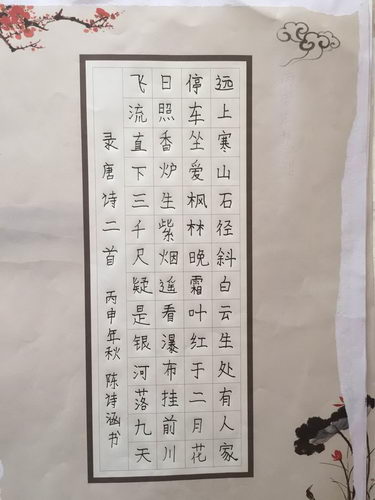 远上寒山石径斜白云生处有人家
停车坐爱枫林晚霜叶红于二月花
日照香炉生紫烟遥看瀑布挂前川
飞流直下三千尺疑是银河落九天
录唐诗二首 丙申年秋 陈诗涵书